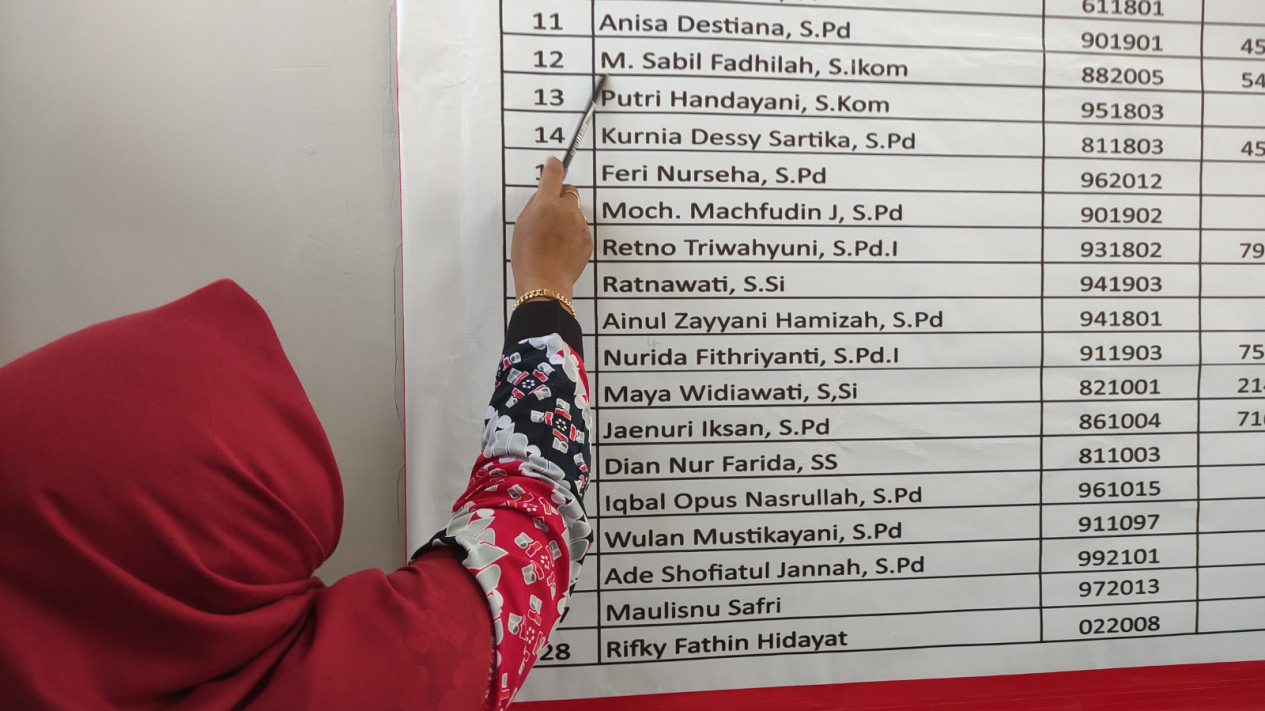 611801
11 Anisa Destiana, S.Pd 901901 45
12 M. Sabil Fadhilah, S.Ikom 882005 54
13 Putri Handayani, S.Kom 951803
14 Kurnia Dessy Sartika, S.Pd 811803 45
Feri Nurseha, S.Pd 962012
Moch. Machfudin J, S.Pd 901902
Retno Triwahyuni, S.Pd.I 931802 79
Ratnawati, S.Si 941903
Ainul Zayyani Hamizah, S.Pd 941801
Nurida Fithriyanti, S.Pd.I 911903 75
Maya Widiawati, S,Si 821001 21
Jaenuri Iksan, S.Pd 861004 71
Dian Nur Farida, SS 811003
Iqbal Opus Nasrullah, S.Pd 961015
Wulan Mustikayani, S.Pd 911097
Ade Shofiatul Jannah, S.Pd 992101
Maulisnu Safri 972013
28 Rifky Fathin Hidayat 022008